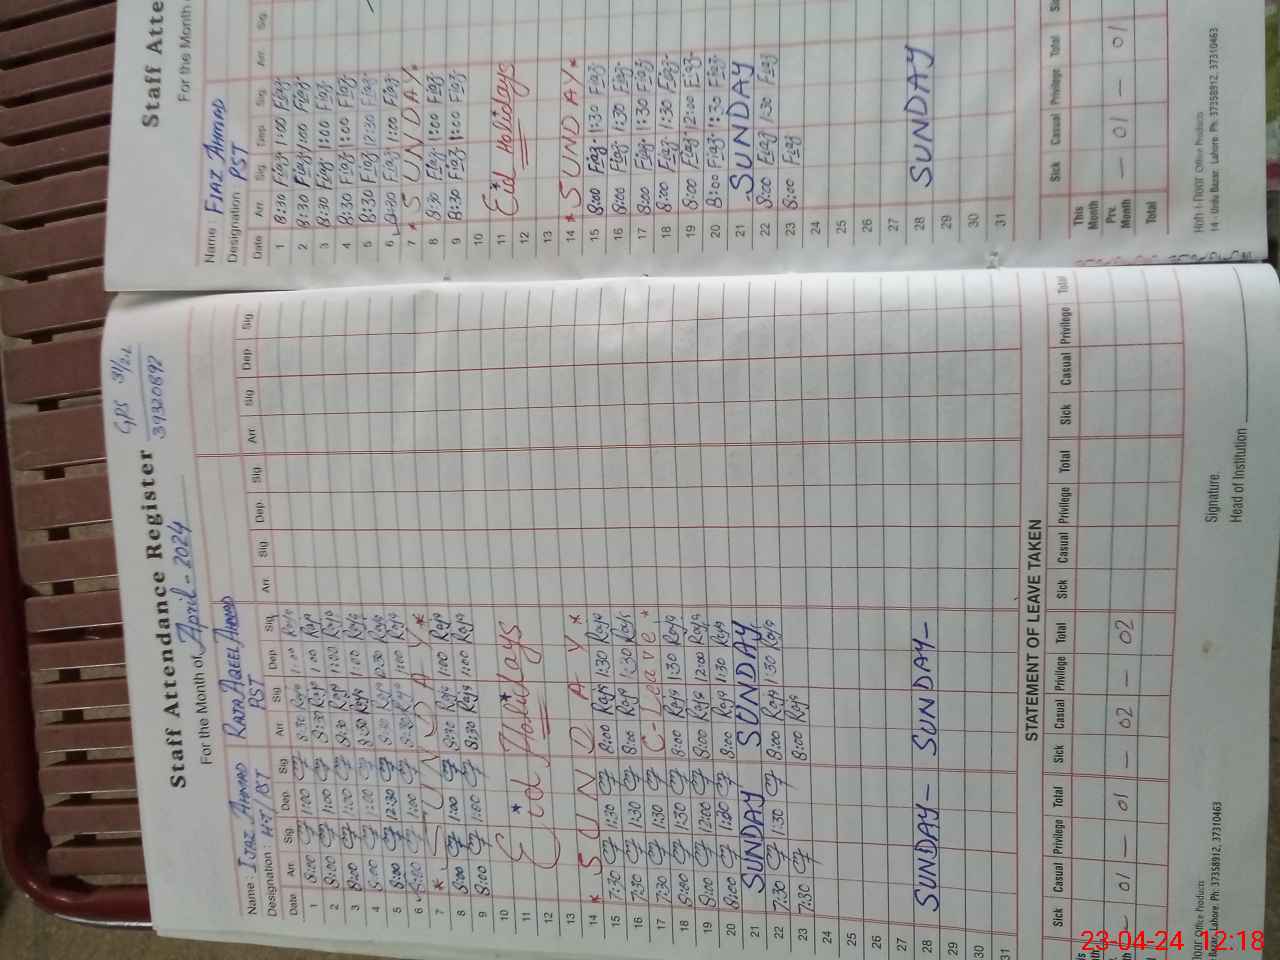 GPS 31/2.L
39320892
Staff Attendance Register
For the Month of April - 2024
Name: Ijaz Ahmad
Designation: H.T/PST
RAJA AQEEL AHMAD
PST
Date Arr. Sig Dep. Sig Arr. Sig Dep. Sig Arr. Sig Dep. Sig Arr. Sig Dep. Sig
1 8:00 1:00 8:30 Raja 1:00 Raja
2 8:00 1:00 8:30 Raja 1:00 Raja
3 8:00 1:00 8:30 Raja 1:00 Raja
4 8:00 1:00 8:30 Raja 1:00 Raja
5 8:00 12:30 8:30 Raja Raja
6 8:00 1:00 8:30 Raja 1:00 Raja
7 * SUNDAY *
8 8:00 1:00 8:30 Raja 1:00 Raja
9 8:00 1:00 8:30 Raja 1:00 Raja
10
11 Eid Holidays
12
13
14 * SUNDAY *
15 7:30 1:30 8:00 Raja 1:30 Raja
16 7:30 1:30 8:00 Raja 1:30 Raja
17 7:30 1:30 C-Leave *
18 8:00 1:30 8:00 Raja 1:30 Raja
19 8:00 12:00 8:00 Raja 12:00 Raja
20 8:00 1:30 8:00 Raja 1:30 Raja
21 SUNDAY SUNDAY
22 7:30 1:30 8:00 Raja 1:30 Raja
23 7:30 8:00 Raja
24
25
26
27
28 SUNDAY - SUNDAY -
29
30
31
STATEMENT OF LEAVE TAKEN
Sick Casual Privilege Total Sick Casual Privilege Total Sick Casual Privilege Total Sick Casual Privilege Total
- 01 - 01 - 02 - 02
Signature.
Head of Institution
Office Products
Bazar, Lahore. Ph: 37358912, 37310463
Staff Atte
For the Month
Name FIAZ AHMAD
Designation PST
Date Arr. Sig Dep. Sig Arr. Sig
1 8:30 Fiaz 1:00 Fiaz
2 8:30 Fiaz 1:00 Fiaz
3 8:30 Fiaz 1:00 Fiaz
4 8:30 Fiaz 1:00 Fiaz
5 8:30 Fiaz 12:30 Fiaz
6 8:30 Fiaz 1:00 Fiaz
7 * SUNDAY *
8 8:30 Fiaz 1:00 Fiaz
9 8:30 Fiaz 1:00 Fiaz
10
11 Eid Holidays
12
13
14 * SUNDAY *
15 8:00 Fiaz 1:30 Fiaz
16 8:00 Fiaz 1:30 Fiaz
17 8:00 Fiaz 1:30 Fiaz
18 8:00 Fiaz 1:30 Fiaz
19 8:00 Fiaz 12:00 Fiaz
20 8:00 Fiaz 1:30 Fiaz
21 SUNDAY
22 8:00 Fiaz 1:30 Fiaz
23 8:00 Fiaz
24
25
26
27
28 SUNDAY
29
30
31
Sick Casual Privilege Total
This Month
Prv. Month - 01 - 01
Total
Office Products
14 - Urdu Bazar, Lahore. Ph: 37358912, 37310463
23-04-24 12:18